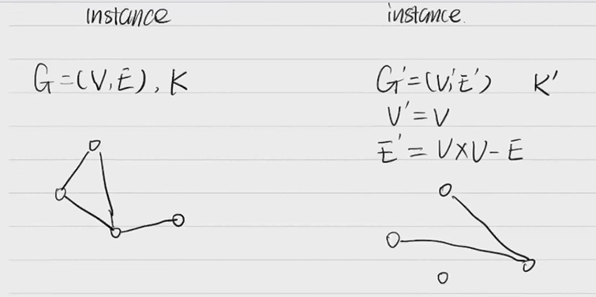 instance
G=(V,E), K
instance.
G'=(V',E') K'
V'=V
E'=V×V-E